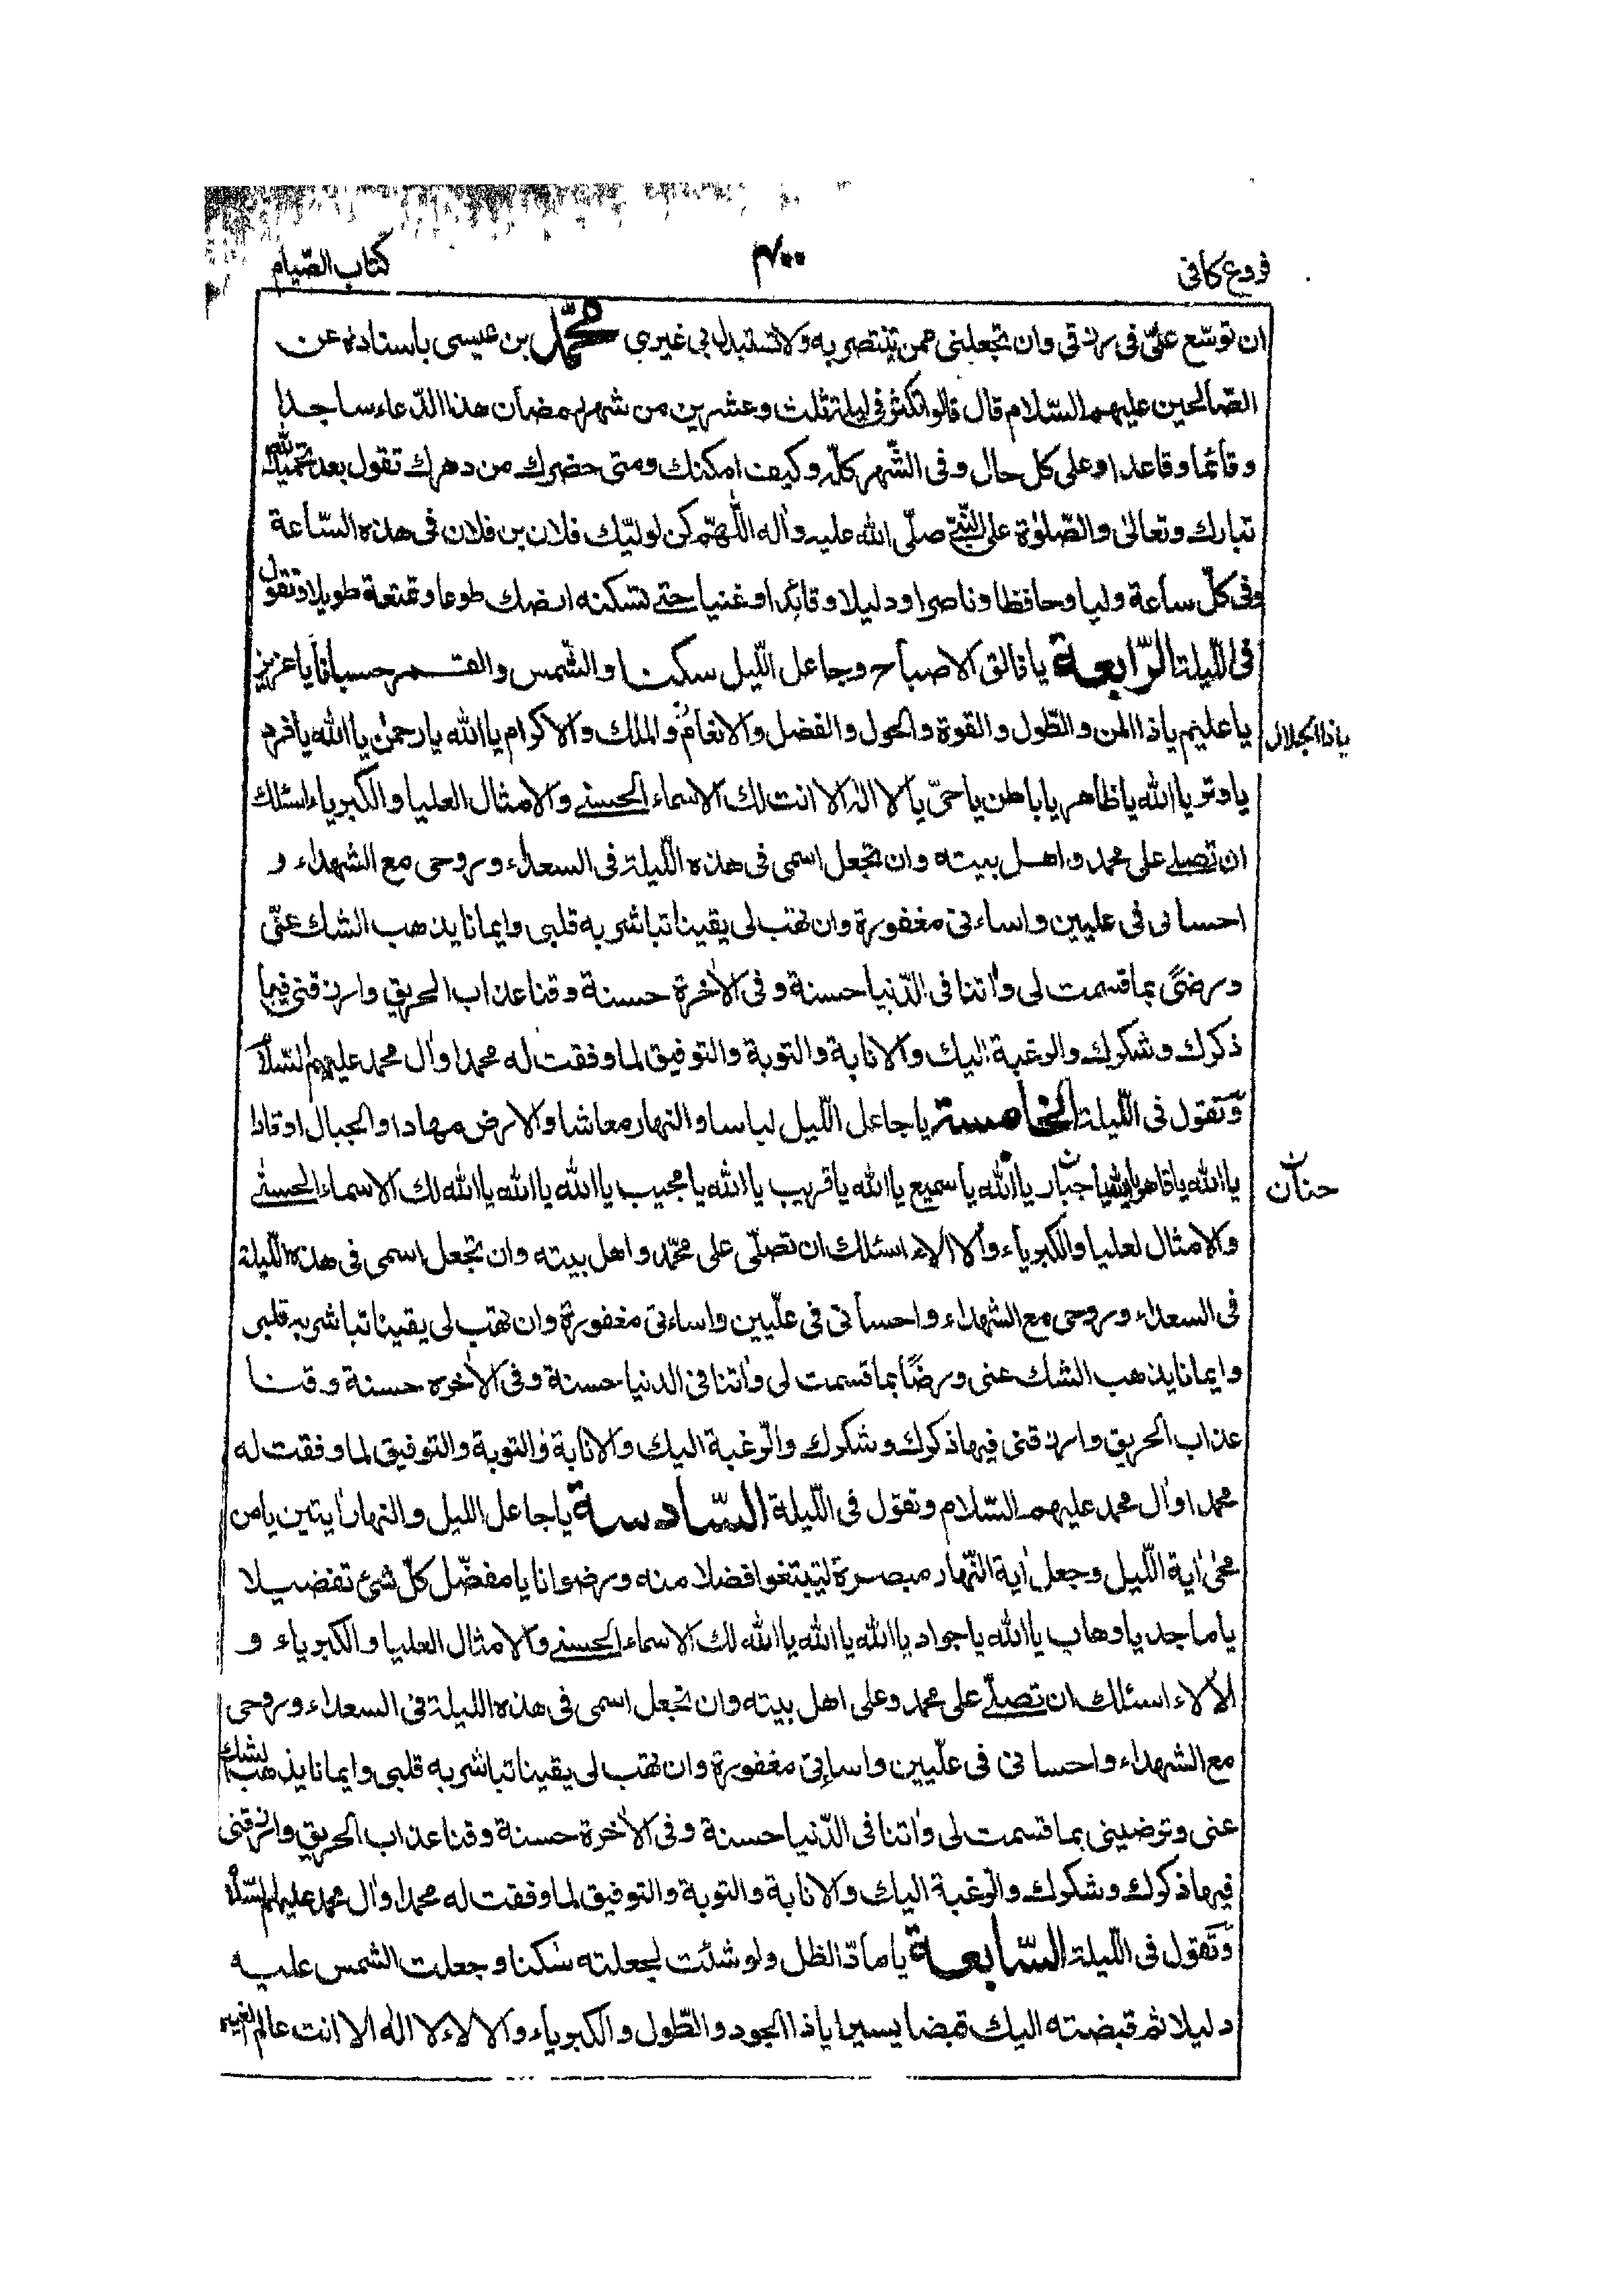 فروع كافى
۴۰۰
كتاب الصّيام
ان توسّع علىّ فى رزقى وان تجعلنى ممن تنتصر به ولا تستبدل بى غيرى محمّد بن عيسى باسناده عن
الصّالحين عليهم السّلام قال قالوا تكثر فى ليلة ثلث وعشرين من شهر رمضان هذا الدّعاء ساجدا
وقائما وقاعدا وعلى كل حال وفى الشّهر كلّه وكيف امكنك ومتى حضرك من دهرك تقول بعد تحميد الله
تبارك وتعالىٰ والصّلوٰة على النّبيّ صلّى الله عليه واٰله اللّٰهمّ كن لوليّك فلان بن فلان فى هذه السّاعة
وفى كلّ ساعة وليا وحافظا وناصرا ودليلا وقائدا وغنيا حتى تسكنه ارضك طوعا وتمتعه طويلا وتقول
فى اللّيلة الرّابعة يا فالق الاصباح وجاعل اللّيل سكنا والشّمس والقمر حسبانا يا عزيز
يا عليم يا ذا المن والطّول والقوة والحول والفضل والانعام والملك والاكرام يا الله يا رحمٰن يا الله يا فرد
يا ذا الجلال
يا وتر يا الله يا ظاهر يا باطن يا حىّ يا لا الٰه الا انت لك الاسماء الحسنى والامثال العليا والكبرياء اسئلك
ان تصلى على محمد واهل بيته وان تجعل اسمى فى هذه اللّيلة فى السعداء وروحى مع الشهداء و
احسانى فى عليين واساءتى مغفورة وان تهب لى يقينا تباشر به قلبى وايمانا يذهب الشك عنّى
ورضىً بما قسمت لى واٰتنا فى الدّنيا حسنة وفى الاٰخرة حسنة وقنا عذاب الحريق وارزقنى فيها
ذكرك وشكرك والرغبة اليك والانابة والتوبة والتوفيق لما وفقت له محمدا واٰل محمد عليهم السّلام
وتقول فى اللّيلة الخامسة يا جاعل اللّيل لباسا والنهار معاشا والارض مهادا والجبال اوتادا
يا الله يا قاهر يا الله يا جبار يا الله يا سميع يا الله يا قريب يا الله يا مجيب يا الله يا الله يا الله لك الاسماء الحسنى
حنان
والامثال لعليا والكبرياء والاٰلاء اسئلك ان تصلّى على محمّد واهل بيته وان تجعل اسمى فى هذه اللّيلة
فى السعداء وروحى مع الشهداء واحسانى فى علّيين واساءتى مغفورة وان تهب لى يقينا تباشر به قلبى
وايمانا يذهب الشك عنى ورضًا بما قسمت لى واٰتنا فى الدنيا حسنة وفى الاٰخره حسنة وقنا
عذاب الحريق وارزقنى فيها ذكرك وشكرك والرّغبة اليك والانابة والتوبة والتوفيق لما وفقت له
محمدا واٰل محمد عليهم السّلام وتقول فى اللّيلة السّادسة يا جاعل الليل والنهار اٰيتين يا من
محىٰ اٰية اللّيل وجعل اٰية النّهار مبصرة لتبتغوا فضلا منه ورضوانا يا مفضّل كلّ شئ تفضيلا
يا ماجد يا وهاب يا الله يا جواد يا الله يا الله يا الله لك الاسماء الحسنى والامثال العليا والكبرياء و
الاٰلاء اسئلك ان تصلّى على محمد وعلى اهل بيته وان تجعل اسمى فى هذه الليلة فى السعداء وروحى
مع الشهداء واحسانى فى علّيين واساءتى مغفورة وان تهب لى يقينا تباشر به قلبى وايمانا يذهب الشك
عنى وترضينى بما قسمت لى واٰتنا فى الدّنيا حسنة وفى الاٰخرة حسنة وقنا عذاب الحريق وارزقنى
فيها ذكرك وشكرك والرّغبة اليك والانابة والتوبة والتوفيق لما وفقت له محمدا واٰل محمد عليهم السّلام
وتقول فى اللّيلة السّابعة يا مادّ الظل ولو شئت لجعلته ساكنا وجعلت الشمس عليه
دليلا ثم قبضته اليك قبضا يسيرا يا ذا الجود والطّول والكبرياء والالاء لا الٰه الا انت عالم الغيب